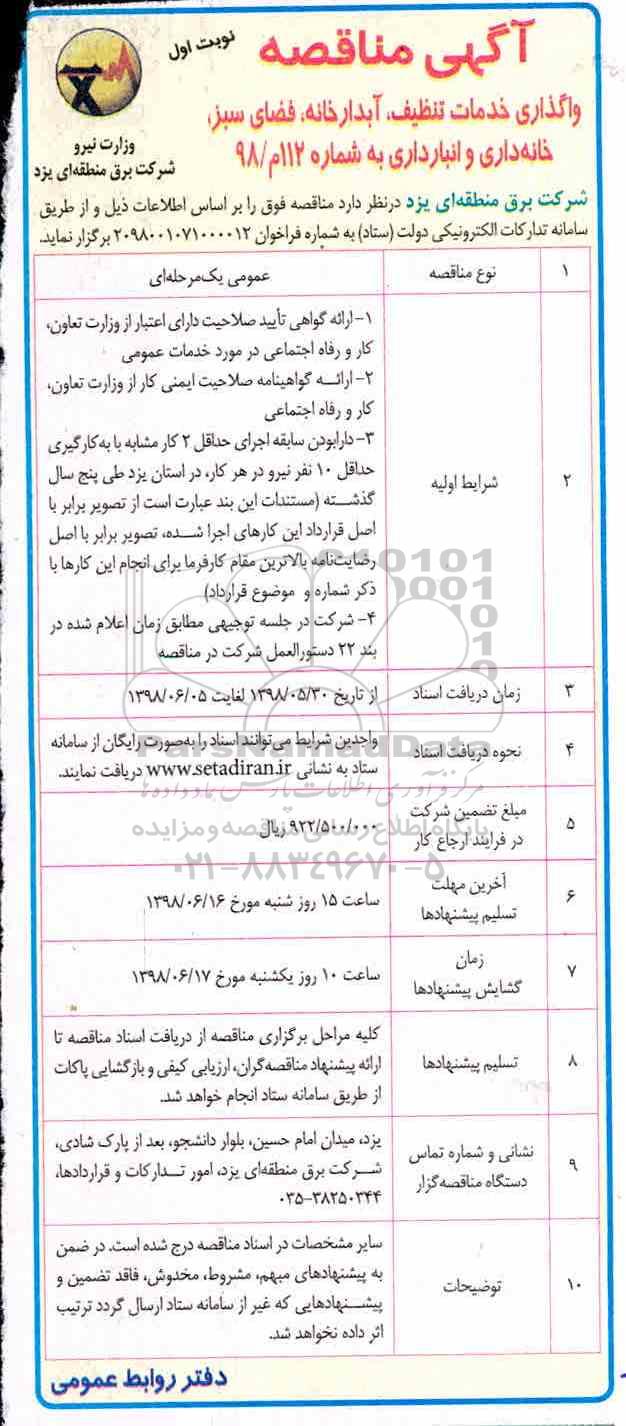 آگهی مناقصه
نوبت اول
واگذاری خدمات تنظیف، آبدارخانه، فضای سبز،
خانه‌داری و انبارداری به شماره ۱۱۲م/۹۸
وزارت نیرو
شرکت برق منطقه‌ای یزد
شرکت برق منطقه‌ای یزد درنظر دارد مناقصه فوق را بر اساس اطلاعات ذیل و از طریق
سامانه تدارکات الکترونیکی دولت (ستاد) به شماره فراخوان ۲۰۹۸۰۰۱۰۷۱۰۰۰۰۱۲ برگزار نماید.
۱ نوع مناقصه عمومی یک‌مرحله‌ای
۲ شرایط اولیه
۱- ارائه گواهی تأیید صلاحیت دارای اعتبار از وزارت تعاون،
کار و رفاه اجتماعی در مورد خدمات عمومی
۲- ارائه گواهینامه صلاحیت ایمنی کار از وزارت تعاون،
کار و رفاه اجتماعی
۳- دارابودن سابقه اجرای حداقل ۲ کار مشابه با به‌کارگیری
حداقل ۱۰ نفر نیرو در هر کار، در استان یزد طی پنج سال
گذشته (مستندات این بند عبارت است از تصویر برابر با
اصل قرارداد این کارهای اجرا شده، تصویر برابر با اصل
رضایت‌نامه بالاترین مقام کارفرما برای انجام این کارها با
ذکر شماره و موضوع قرارداد)
۴- شرکت در جلسه توجیهی مطابق زمان اعلام شده در
بند ۲۲ دستورالعمل شرکت در مناقصه
۳ زمان دریافت اسناد از تاریخ ۱۳۹۸/۰۵/۳۰ لغایت ۱۳۹۸/۰۶/۰۵
۴ نحوه دریافت اسناد
واجدین شرایط می‌توانند اسناد را به‌صورت رایگان از سامانه
ستاد به نشانی www.setadiran.ir دریافت نمایند.
ParsNamadData
مرکز فرآوری اطلاعات پارس نماد داده‌ها
۵ مبلغ تضمین شرکت
در فرایند ارجاع کار
۹۲۲/۵۰۰/۰۰۰ ریال
پایگاه اطلاع رسانی مناقصه و مزایده
۰۲۱-۸۸۳۴۹۶۷۰-۵
۶ آخرین مهلت
تسلیم پیشنهادها
ساعت ۱۵ روز شنبه مورخ ۱۳۹۸/۰۶/۱۶
۷ زمان
گشایش پیشنهادها
ساعت ۱۰ روز یکشنبه مورخ ۱۳۹۸/۰۶/۱۷
۸ تسلیم پیشنهادها
کلیه مراحل برگزاری مناقصه از دریافت اسناد مناقصه تا
ارائه پیشنهاد مناقصه‌گران، ارزیابی کیفی و بازگشایی پاکات
از طریق سامانه ستاد انجام خواهد شد.
۹ نشانی و شماره تماس
دستگاه مناقصه‌گزار
یزد، میدان امام حسین، بلوار دانشجو، بعد از پارک شادی،
شرکت برق منطقه‌ای یزد، امور تدارکات و قراردادها،
۰۳۵-۳۸۲۵۰۳۴۴
۱۰ توضیحات
سایر مشخصات در اسناد مناقصه درج شده است. در ضمن
به پیشنهادهای مبهم، مشروط، مخدوش، فاقد تضمین و
پیشنهادهایی که غیر از سامانه ستاد ارسال گردد ترتیب
اثر داده نخواهد شد.
دفتر روابط عمومی